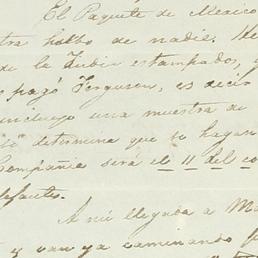 El Paquete de Mexico
tra hablo de nadie. He
de la Zubir estampados,
pagó Ferguson, es decir
incluyo una muestra de
determina que se hagan
Compañia será el 11 del co
defautes.
A mi llegada a Ma
y van ya caminando